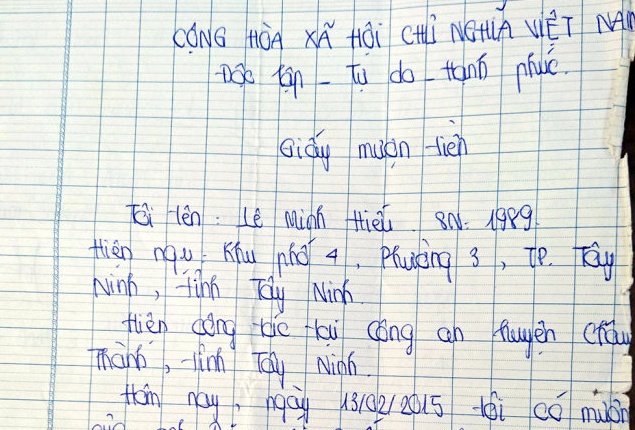 CỘNG HÒA XÃ HỘI CHỦ NGHĨA VIỆT NAM
Độc lập - Tự do - Hạnh phúc.
Giấy mượn tiền
Tôi tên: Lê Minh Hiếu. SN: 1989.
Hiện ngụ: Khu phố 4, Phường 3, TP. Tây
Ninh, tỉnh Tây Ninh.
Hiện công tác tại công an huyện Châu
Thành, tỉnh Tây Ninh.
Hôm nay, ngày 13/02/2015 tôi có mượn